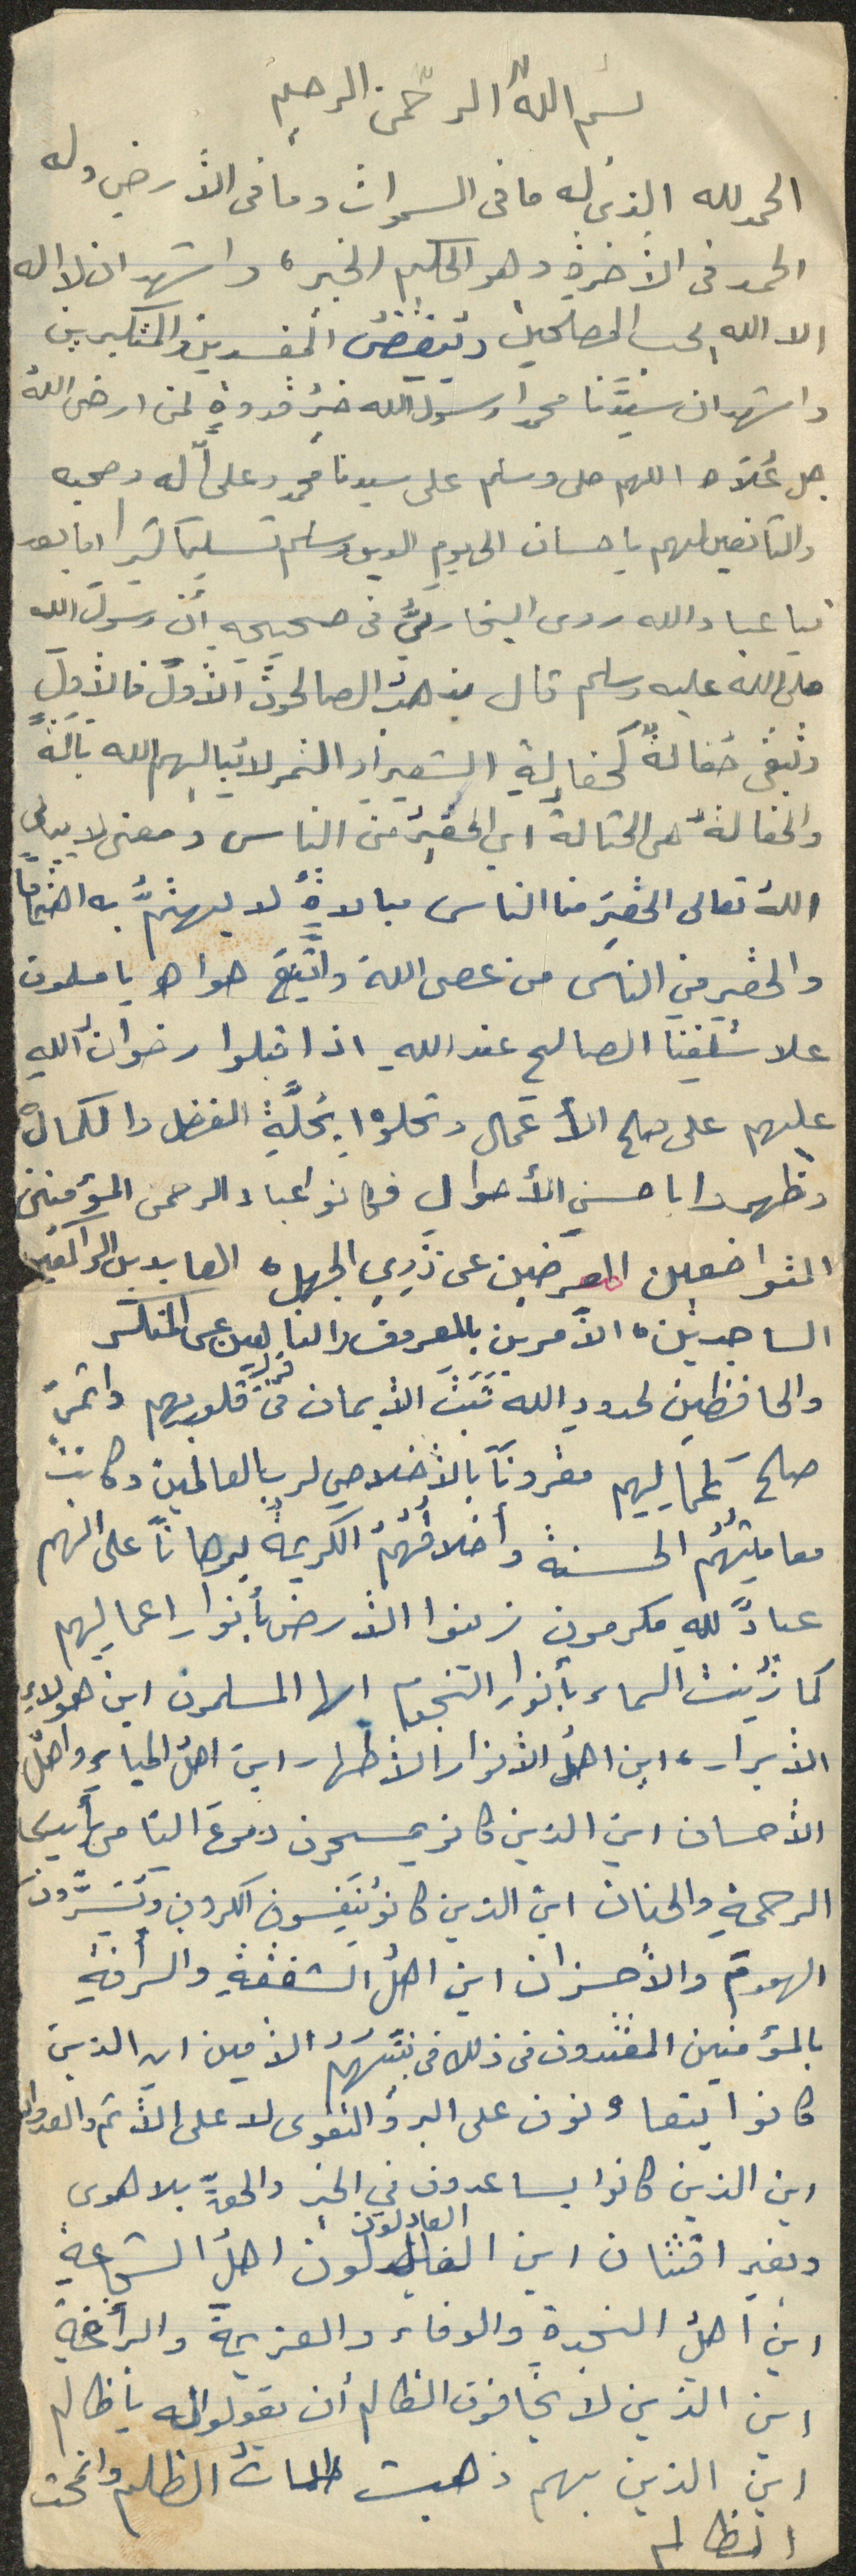 بسم الله الرحمن الرحيم
الحمد لله الذي له ما في السموات وما في الأرض وله
الحمد في الأخرة وهو الحكيم الخبير، واشهد ان لا اله
الا الله يحب المصلحين ويبغض المفسدين والمتكبرين
واشهد ان سيدنا محمدا رسول الله خير قدوة لمن ارضى الله
جل علاه اللهم صل وسلم على سيدنا محمد وعلى آله وصحبه
والتابعين لهم باحسان الى يوم الدين وسلم تسليما كثيرا اما بعد
فيا عباد الله روى البخاري في صحيحه أن رسول الله
صلى الله عليه وسلم قال يذهب الصالحون الأول فالأول
وتبقى حفالة كحفالة الشعير أو التمر لا يباليهم الله بالة
والحفالة هي الحثالة اي الحقير من الناس ومعنى لا يبالي
الله تعالى الحقير من الناس مبالاة لا يهتم به اهتماما
والحقير من الناس من عصى الله واتبع هواه يا مسلمون
علا سلفنا الصالح عند الله اذ اقبلوا رضوان الله
عليهم على صالح الأعمال وتحلوا بحلة الفضل والكمال
وظهروا باحسن الأحوال فكانوا عباد الرحمن المؤمنين
المتواضعين المعرضين عن ذوي الجهل، العابدين الراكعين
الساجدين، الأمرين بالمعروف والناهين عن المنكر
والحافظين لحدود الله ثبت الأيمان في قلوبهم وأثمر
صالح أعمالهم مقرونا بالأخلاص لرب العالمين وكانت
معاملتهم الحسنة وأخلاقهم الكريمة برهانا على انهم
عباد لله مكرمون زينوا الأرض بأنوار اعمالهم
كما زينت السماء بأنوار النجوم ايها المسلمون اين هولاء
الأبرار، اين اهل الأنوار الأطهار اين اهل الحياء واهل
الأحسان اين الذين كانو يمسحون دموع اليتامى بأيدي
الرحمة والحنان اين الذين كانو ينفسون الكروب ويسرون
الهموم والأحزان اين اهل الشفقة والرأفة
بالمؤمنين المقتدون في ذلك في نبيهم الأمين اين الذين
كانوا يتعاونون على البر والتقوى لا على الأثم والعدوان
اين الذين كانوا يساعدون في الخير والحق بلا هوى
العادلون
وبغير افتتان اين اهل الشجاعة
اين أهل النجدة والوفاء والعزيمة
اين الذين لا يخافون الظالم أن يقولوا له يا ظالم
اين الذين بهم ذهبت ظلمات الظلم وانمحت
المظالم